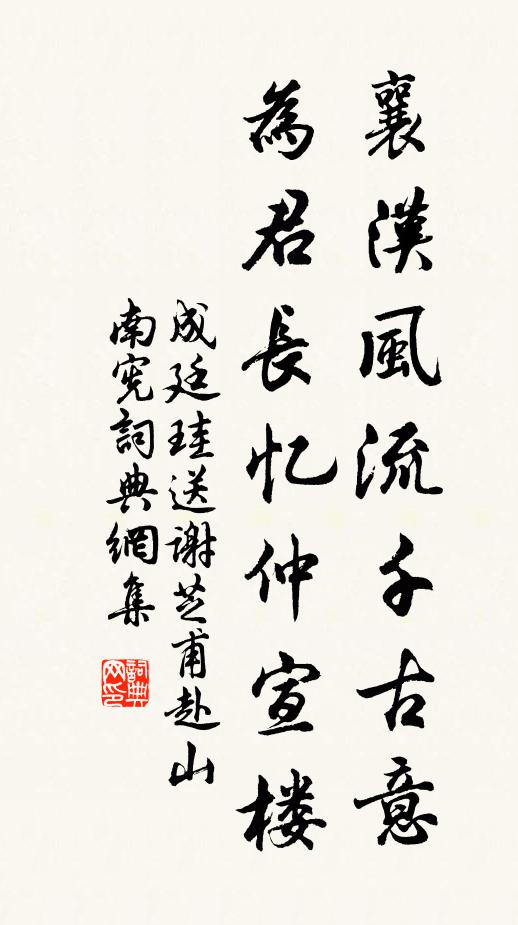 襄漢風流千古意
為君長忆仲宣楼
成廷珪送谢芝甫赴山
南宪詞典網集
詞典网印